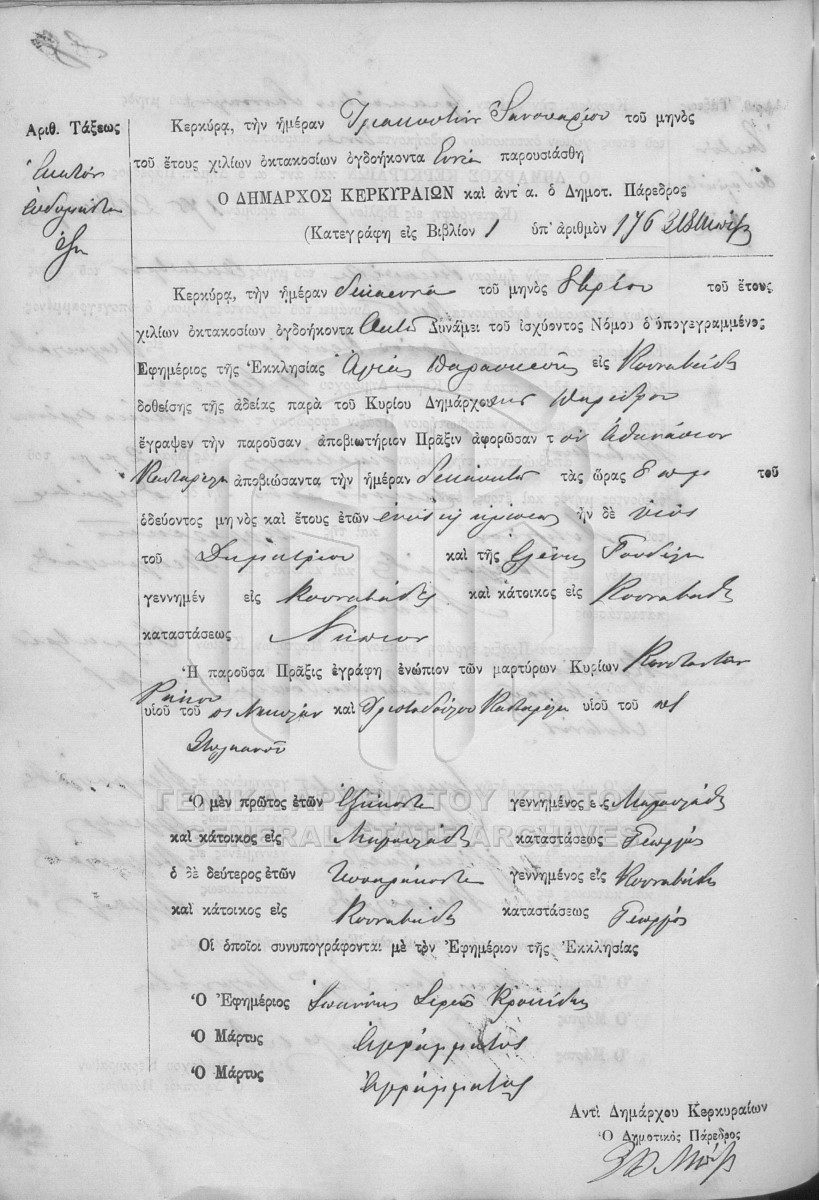 Ἀριθ. Τάξεως
Ἑκατὸν
ἑβδομήκοντα
ἕξη
Κερκύρα, τὴν ἡμέραν Τριακοστὴν Ἰανουαρίου τοῦ μηνὸς
τοῦ ἔτους χιλίων ὀκτακοσίων ὀγδοήκοντα Ἐννέα παρουσιάσθη
Ο ΔΗΜΑΡΧΟΣ ΚΕΡΚΥΡΑΙΩΝ καὶ ἀντ' α. ὁ Δημοτ. Πάρεδρος
(Κατεγράφη εἰς Βιβλίον 1 ὑπ' ἀριθμὸν 176
Κερκύρα, τὴν ἡμέραν δεκαεννέα τοῦ μηνὸς 8βρίου τοῦ ἔτους
χιλίων ὀκτακοσίων ὀγδοήκοντα Ὀκτὼ Δυνάμει τοῦ ἰσχύοντος Νόμου ὁ ὑπογεγραμμένος
Ἐφημέριος τῆς Ἐκκλησίας Ἁγίας Παρασκευῆς εἰς Κουναβάδες
δοθείσης τῆς ἀδείας παρὰ τοῦ Κυρίου Δημάρχου Παρέδρου
ἔγραψεν τὴν παροῦσαν ἀποβιωτήριον Πρᾶξιν ἀφορῶσαν τ ὸν Ἀθανάσιον
ἀποβιώσαντα τὴν ἡμέραν δεκαοκτὼ τὰς ὥρας 8 π.μ. τοῦ
ὁδεύοντος μηνὸς καὶ ἔτους ἐτῶν ἑνὸς ἡμίσεως ἦν δὲ υἱὸς
τοῦ Δημητρίου καὶ τῆς Ἑλένης
γεννημέν εἰς Κουναβάδες καὶ κάτοικος εἰς Κουναβάδες
καταστάσεως Νήπιον
Ἡ παροῦσα Πρᾶξις ἐγράφη ἐνώπιον τῶν μαρτύρων Κυρίων Κωνσταντῖν
υἱοῦ τοῦ ποτὲ Νικολάου καὶ Χριστοδούλου υἱοῦ τοῦ ποτὲ
Στυλιανοῦ
ΓΕΝΙΚΑ ΑΡΧΕΙΑ ΤΟΥ ΚΡΑΤΟΥΣ
GENERAL STATE ARCHIVES
Ὁ μὲν πρῶτος ἐτῶν ἑξήκοντα γεννημένος εἰς
καὶ κάτοικος εἰς καταστάσεως Γεωργὸς
ὁ δὲ δεύτερος ἐτῶν τεσσαράκοντα γεννημένος εἰς Κουναβάδες
καὶ κάτοικος εἰς Κουναβάδες καταστάσεως Γεωργὸς
Οἱ ὁποῖοι συνυπογράφονται μὲ τὸν Ἐφημέριον τῆς Ἐκκλησίας
Ὁ Ἐφημέριος Ἰωάννης Ἱερεὺς
Ὁ Μάρτυς ἀγράμματος
Ὁ Μάρτυς ἀγράμματος
Ἀντὶ Δημάρχου Κερκυραίων
Ὁ Δημοτικὸς Πάρεδρος